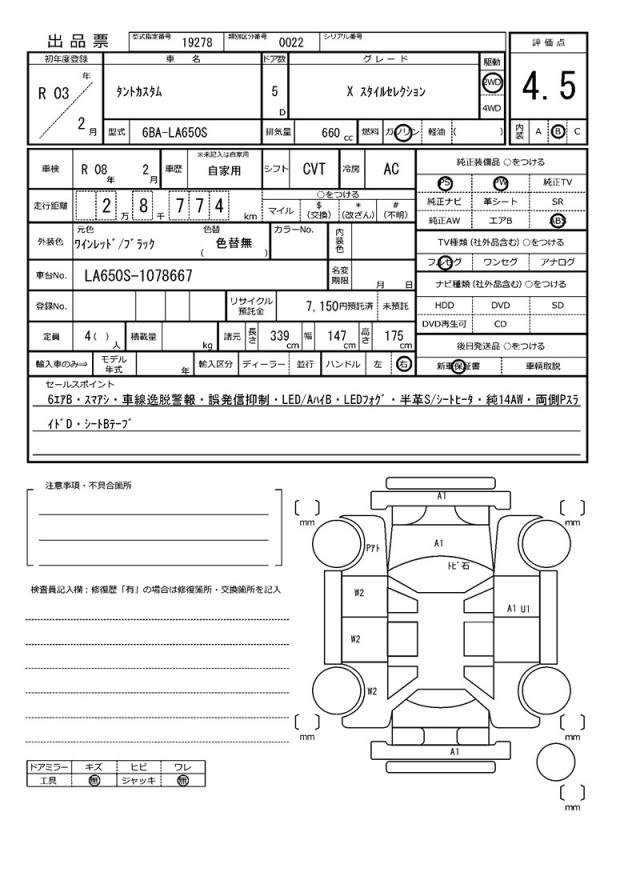 出品票 型式指定番号 19278 類別区分番号 0022 シリアル番号
評価点
4.5
内装 A B C
初年度登録 車名 ドア数 グレード 駆動
R 03 年 2 月 タントカスタム 5 D X スタイルセレクション 2WD 4WD
型式 6BA-LA650S 排気量 660 cc 燃料 ガソリン 軽油 ( )
車検 R 08 年 2 月 車歴 ※未記入は自家用 自家用 シフト CVT 冷房 AC
走行距離 2 万 8 千 7 7 4 km ○をつける マイル $ (交換) * (改ざん) # (不明)
外装色 元色 ワインレッド/ブラック 色替 ( 色替無 ) カラーNo. 内装色
車台No. LA650S-1078667 名変期限 月 日
登録No. リサイクル預託金 7,150円預託済 未預託
定員 4( ) 人 積載量 kg 諸元 長さ 339 cm 幅 147 cm 高さ 175 cm
輸入車のみ⇒ モデル年式 年 輸入区分 ディーラー 並行 ハンドル 左 右
純正装備品 ○をつける
PS PW 純正TV
純正ナビ 革シート SR
純正AW エアB ABS
TV種類 (社外品含む) ○をつける
フルセグ ワンセグ アナログ
ナビ種類 (社外品含む) ○をつける
HDD DVD SD
DVD再生可 CD
後日発送品 ○をつける
新車保証書 車輌取説
セールスポイント
6エアB・スマアシ・車線逸脱警報・誤発信抑制・LED/AハイB・LEDフォグ・半革S/シートヒータ・純14AW・両側Pスラ
イドD・シートBテープ
注意事項・不具合箇所
検査員記入欄：修復歴「有」の場合は修復箇所・交換箇所を記入
ドアミラー キズ ヒビ ワレ
工具 無 ジャッキ 無
A1
mm mm
Pアト A1
トビ石
W2 A1 U1
W2
W2
mm mm
A1
mm